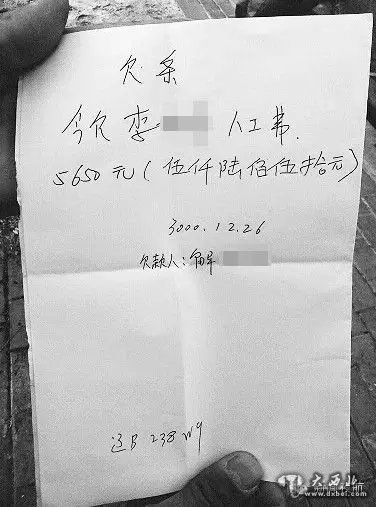 欠条
今欠 李 人工费.
5650元(伍仟陆佰伍拾元)
3000.12.26
欠款人:
辽B 238 W9
大西北
www.dxbei.com